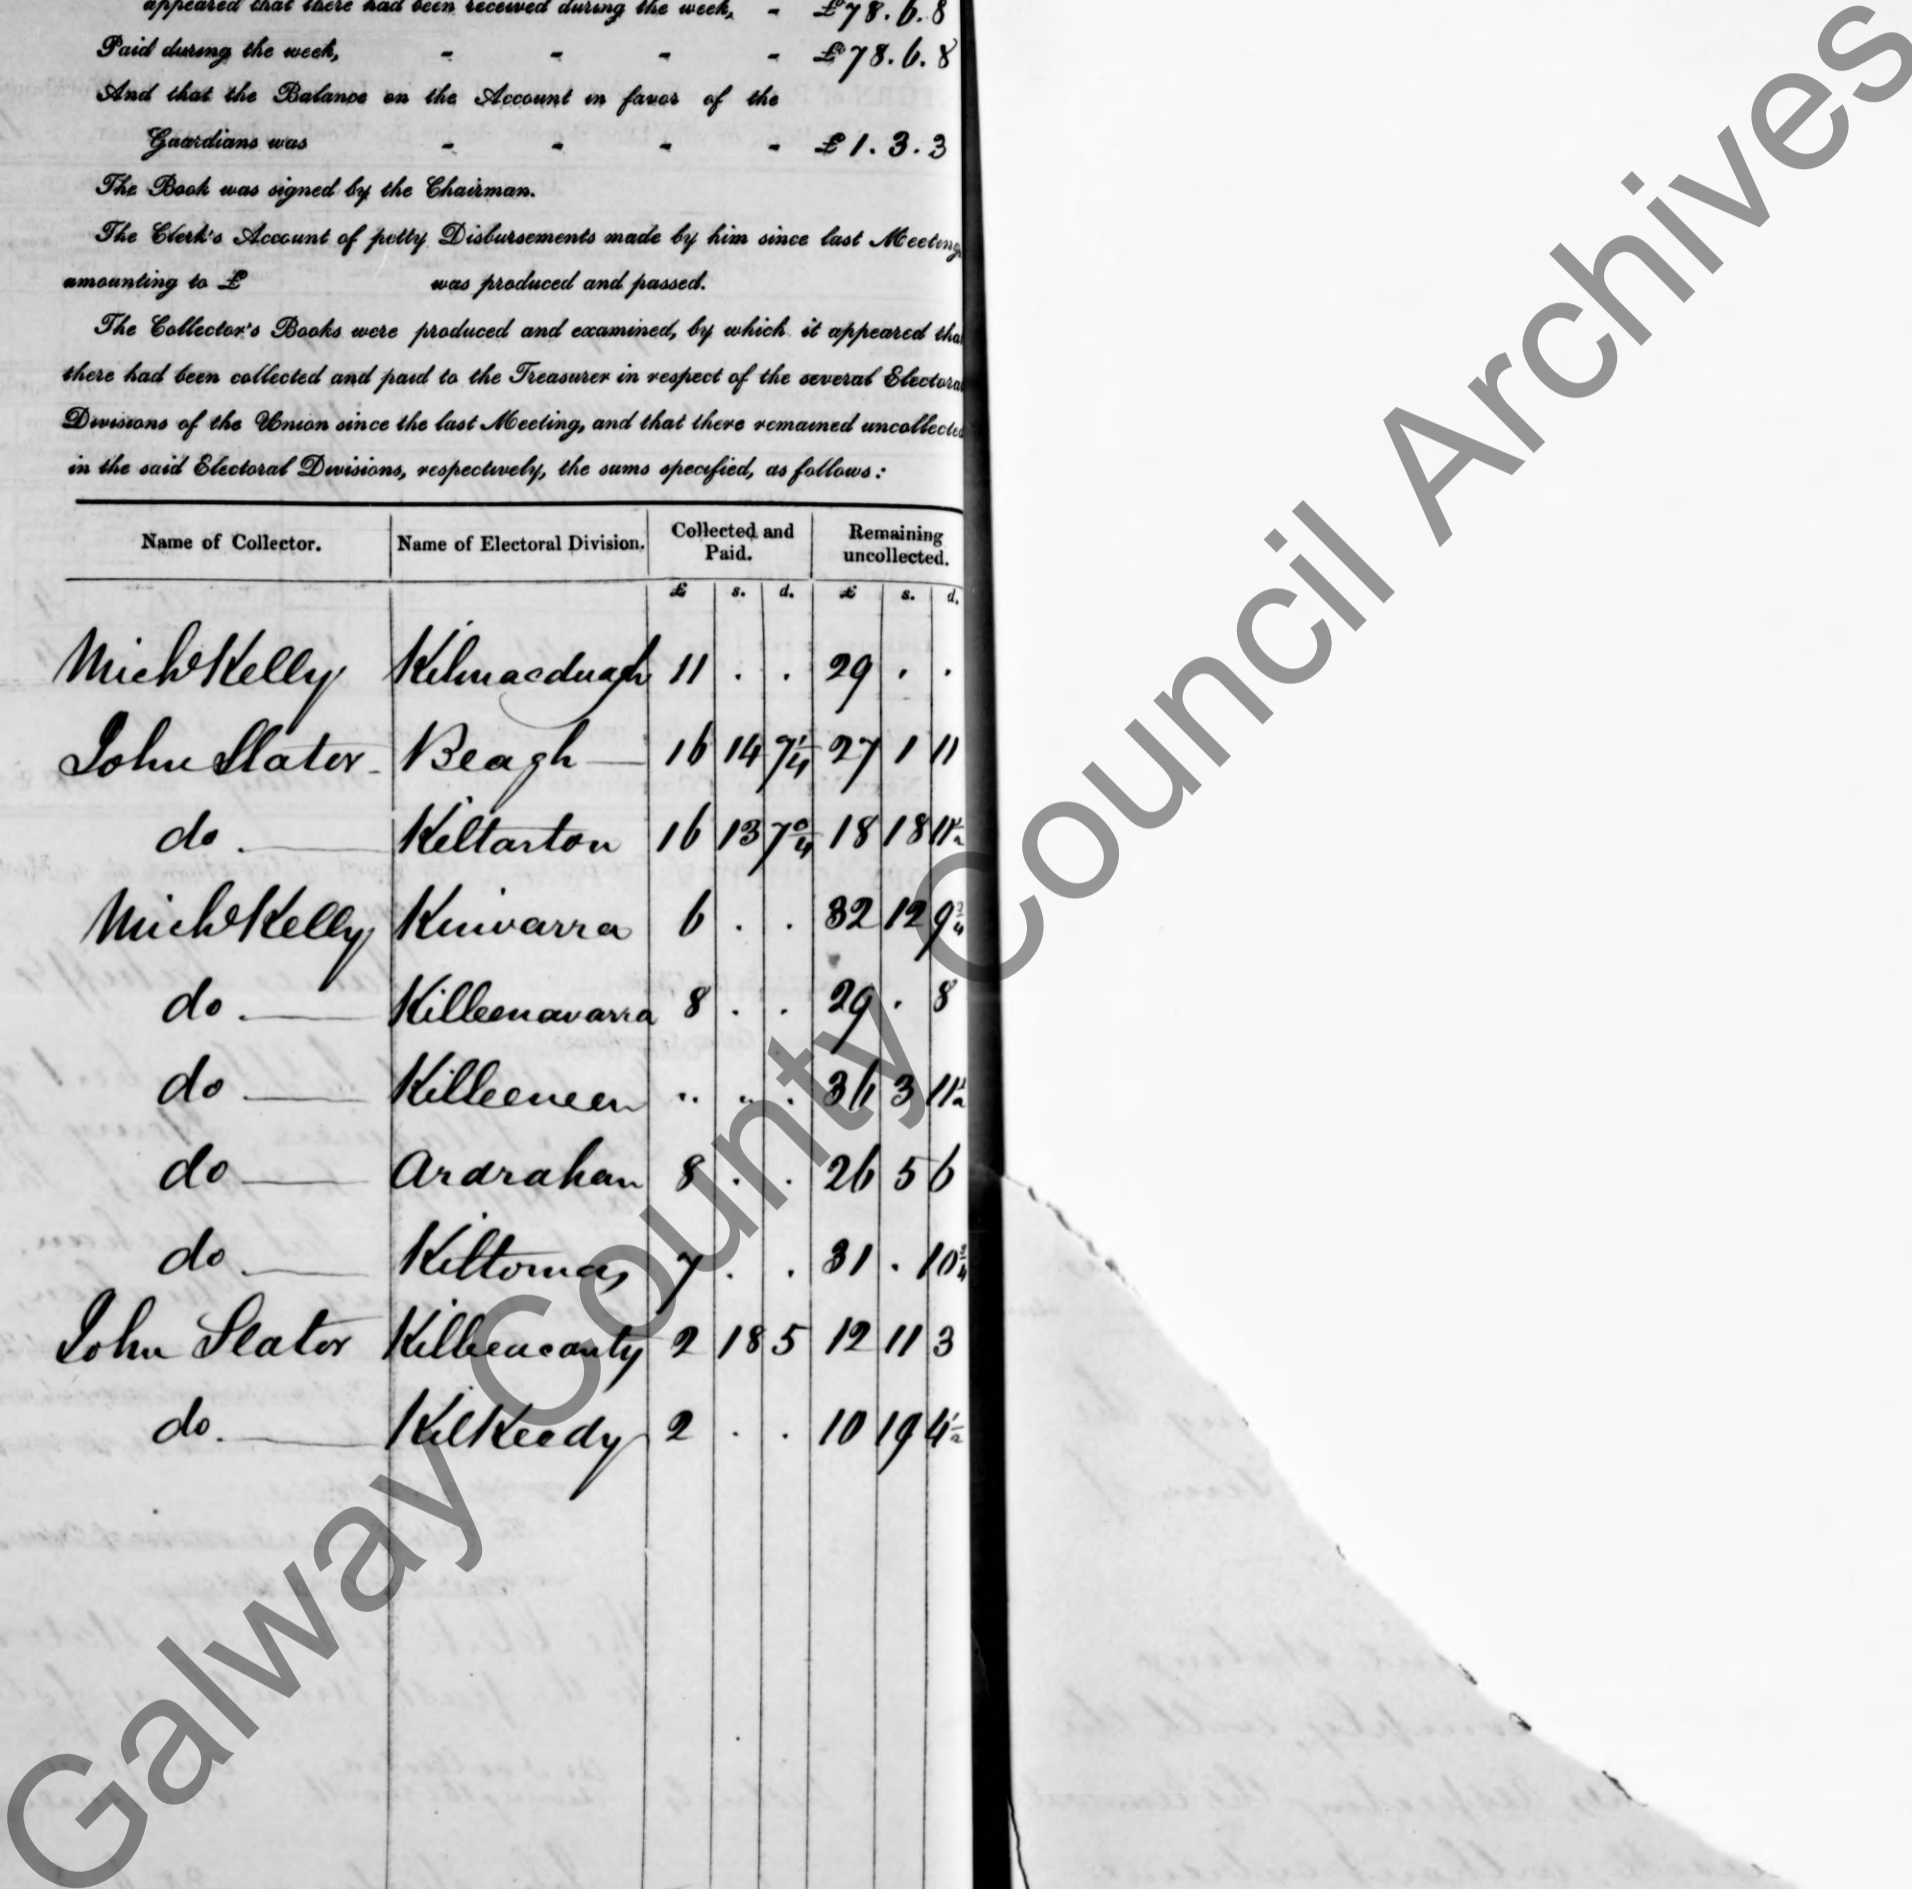 appeared that there had been received during the week, - £78.6.8
Paid during the week, - - - - £78.6.8
And that the Balance on the Account in favor of the
Guardians was - - - - £1.3.3
The Book was signed by the Chairman.
The Clerk's Account of petty Disbursements made by him since last Meeting,
amounting to £ was produced and passed.
The Collector's Books were produced and examined, by which it appeared tha
there had been collected and paid to the Treasurer in respect of the several Electora
Divisions of the Union since the last Meeting, and that there remained uncollected
in the said Electoral Divisions, respectively, the sums specified, as follows:
Name of Collector. Name of Electoral Division. Collected and Paid. Remaining uncollected.
£ s. d. £ s. d.
Michl Kelly Kilmacduagh 11 . . 29 . .
John Slator - Beagh — 16 14 7 1/4 27 1 11
do. — Kiltartan 16 13 7 18 18 11 1/2
Michl Kelly Kinvarra 6 . . 32 12 9 3/4
do. — Killeenavarra 8 . . 29 . 8
do — Killeeneen " " . 36 3 11 1/2
do — Ardrahan 8 . . 26 5 6
do — Kiltomas 7 . . 31 . 10 3/4
John Slator Killeencanty 2 18 5 12 11 3
do. — KilKeedy 2 . . 10 19 4 1/2
Galway County Council Archives